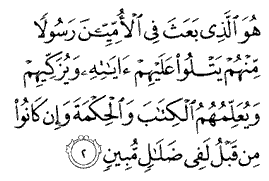 هُوَ ٱلَّذِى بَعَثَ فِى ٱلْأُمِّيِّـۧنَ رَسُولًا
مِّنْهُمْ يَتْلُوا۟ عَلَيْهِمْ ءَايَـٰتِهِۦ وَيُزَكِّيهِمْ
وَيُعَلِّمُهُمُ ٱلْكِتَـٰبَ وَٱلْحِكْمَةَ وَإِن كَانُوا۟
مِن قَبْلُ لَفِى ضَلَـٰلٍ مُّبِينٍ ٢